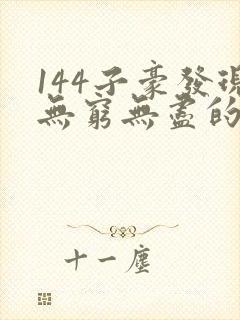 144子豪發現
無窮無盡的
十一塵